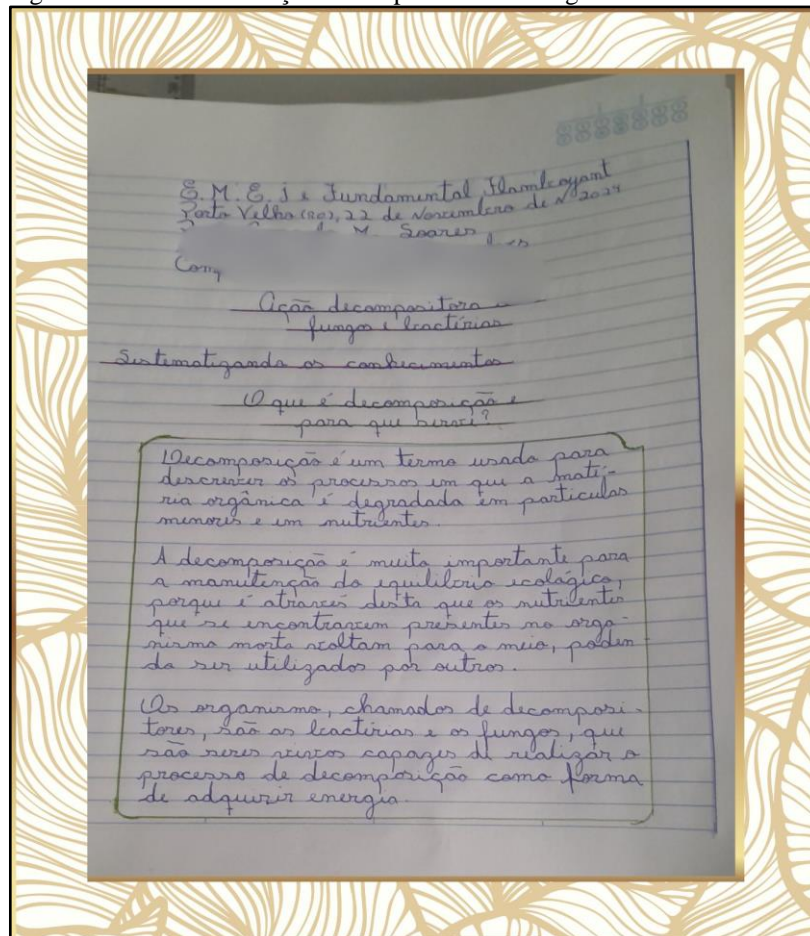 E. M. E. I e Fundamental Flamboyant
Porto Velho (RO), 22 de Novembro de 2024
M Soares
Com
Ação decompositora
fungos e bactérias
Sistematizando os conhecimentos
O que é decomposição e
para que serve?
Decomposição é um termo usado para
descrever os processos em que a maté-
ria orgânica é degradada em partículas
menores e em nutrientes.
A decomposição é muito importante para
a manutenção do equilíbrio ecológico,
porque é através desta que os nutrientes
que se encontravem presentes no orga-
nismo morto voltam para o meio, poden
do ser utilizados por outros.
Os organismo, chamados de decomposi-
tores, são as bactérias e os fungos, que
são seres vivos capazes de realizar o
processo de decomposição como forma
de adquirir energia.